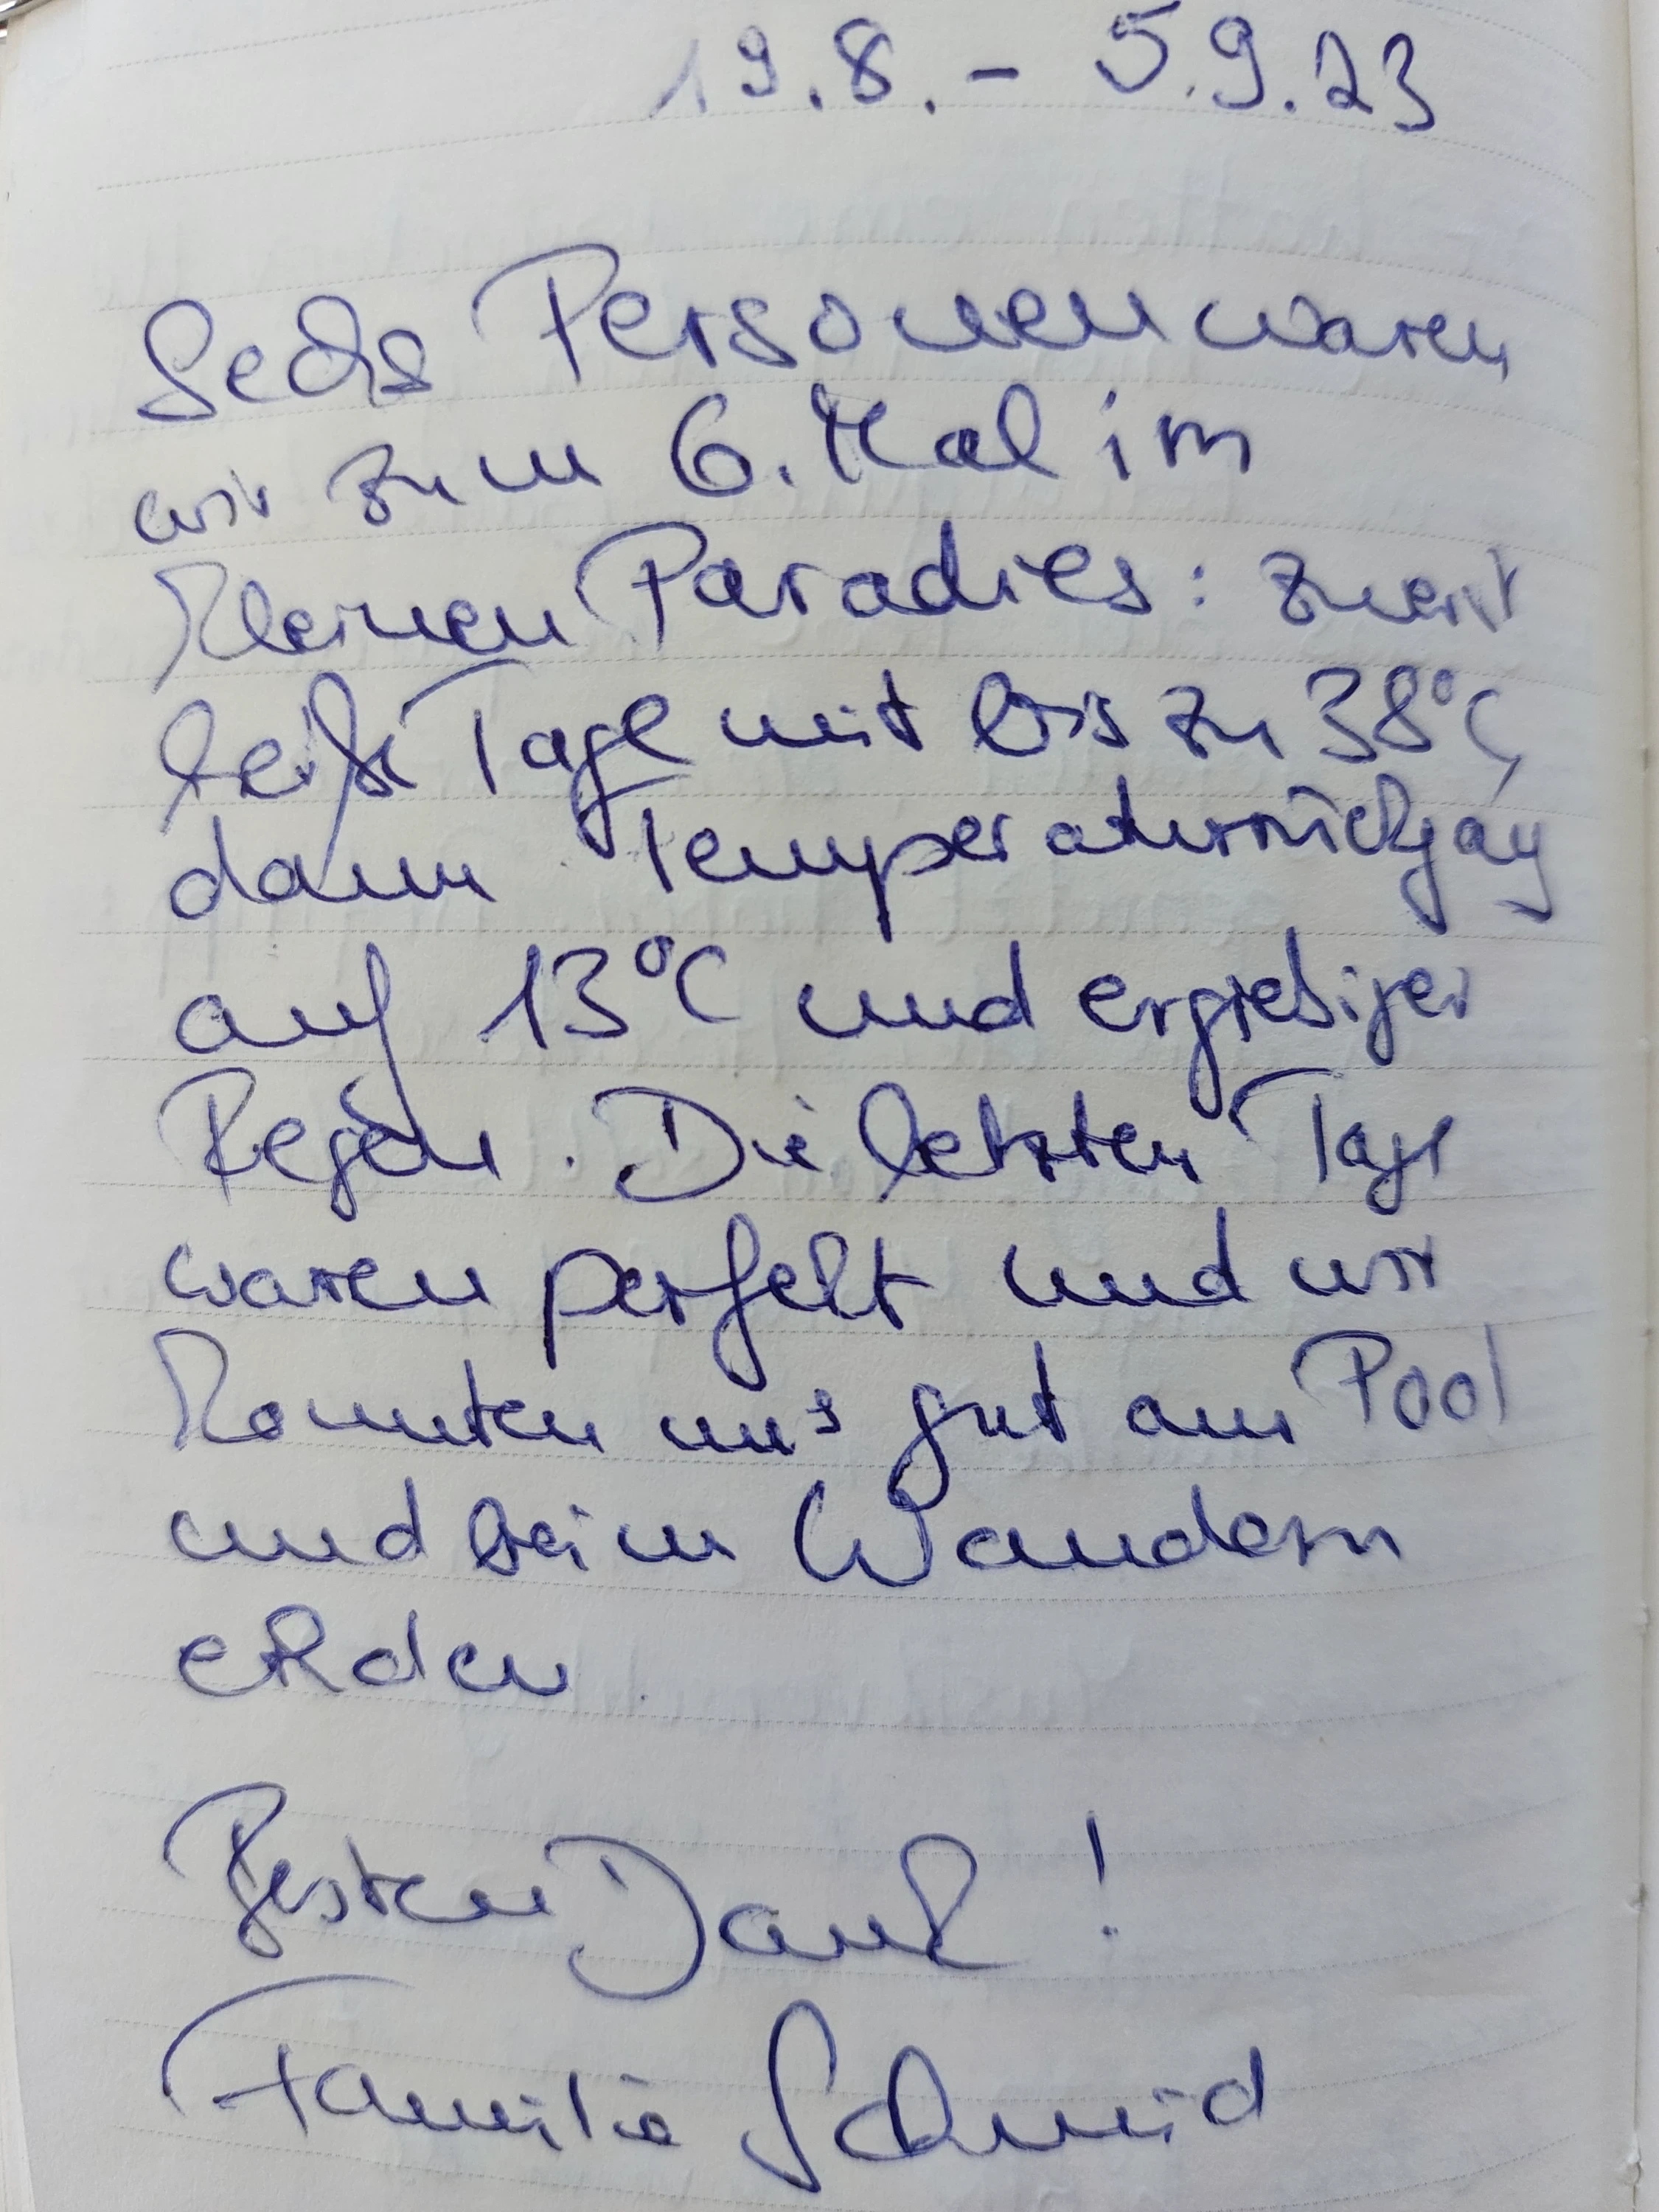 19.8. - 5.9.23
Sechs Personen waren
wir zum 6. Mal im
Kleinen Paradies: zuerst
heiße Tage mit bis zu 38°C,
dann Temperaturrückgang
auf 13°C und ergiebiger
Regen. Die letzten Tage
waren perfekt und wir
konnten uns gut am Pool
und beim Wandern
Besten Dank!
Familie Schmid